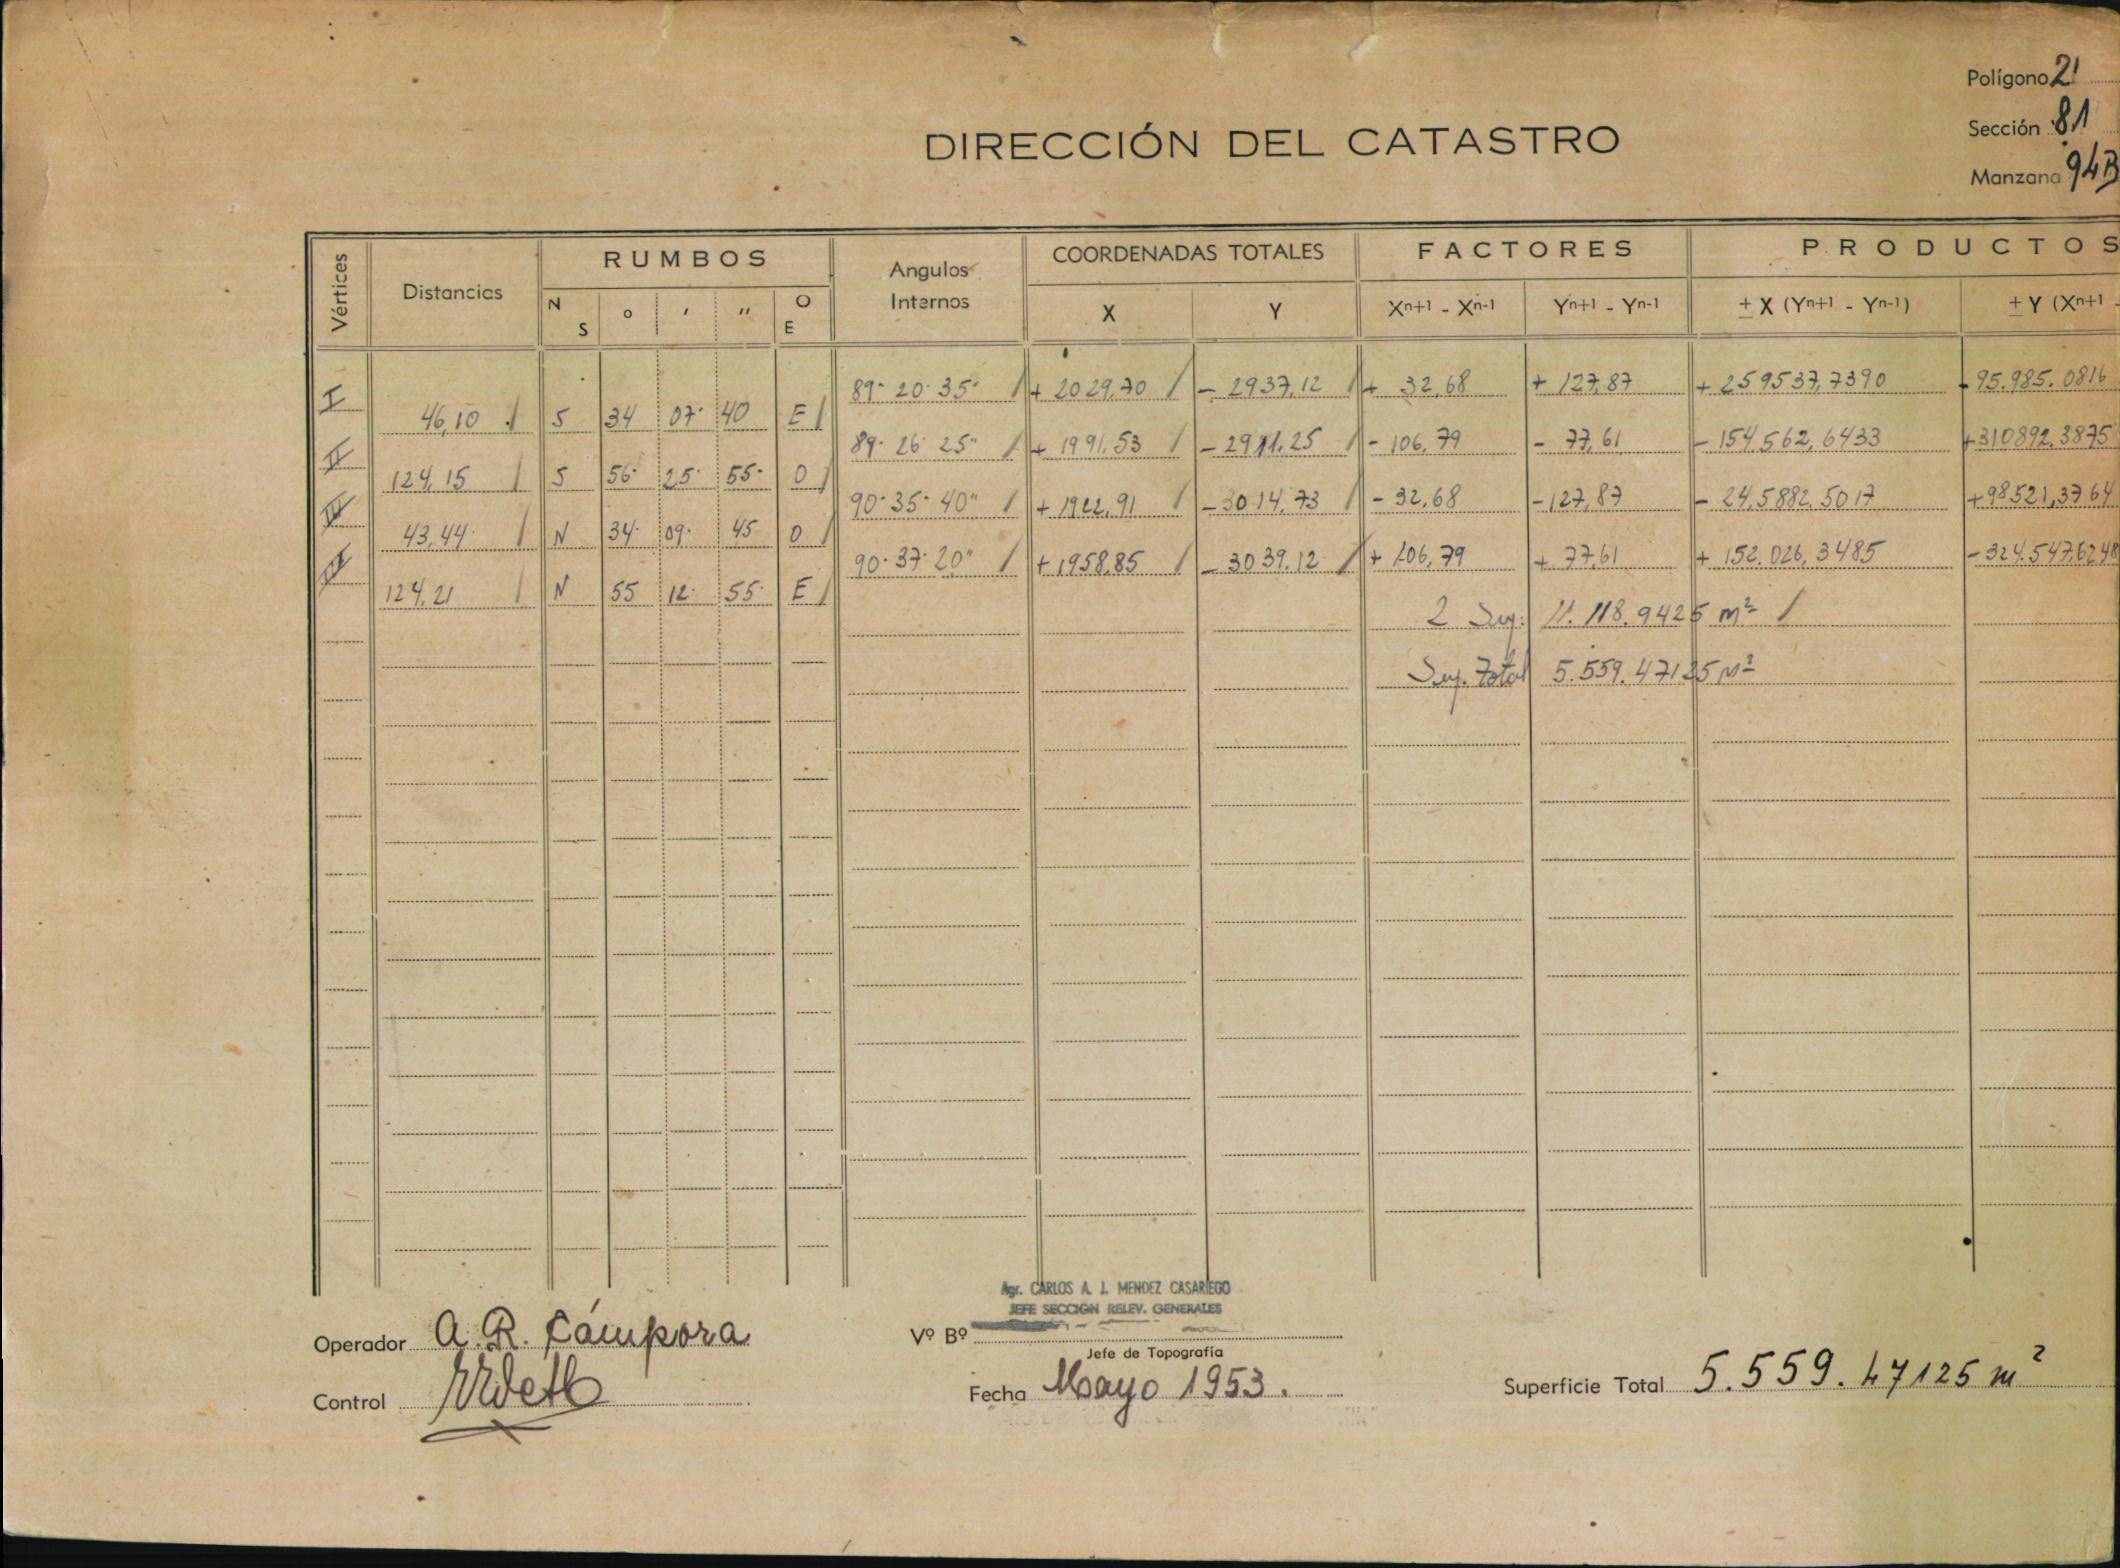 Polígono 21
DIRECCIÓN DEL CATASTRO
Sección 81
Manzana 94B
Vértices Distancias RUMBOS Angulos Internos COORDENADAS TOTALES FACTORES PRODUCTOS
N S ° ' " O E X Y Xn+1 - Xn-1 Yn+1 - Yn-1 ± X (Yn+1 - Yn-1) ± Y (Xn+1 -
I 89° 20' 35" + 2029,70 - 2937,12 + 32,68 + 127,87 + 259537,7390 - 95.985.0816
46,10 S 34 07' 40 E
II 89° 26' 25" + 1991.53 - 2911.25 - 106,79 - 77,61 - 154.562,6433 + 310892.3875
124,15 S 56° 25' 55" O
III 90° 35' 40" + 1922,91 - 3014,73 - 32,68 - 127,87 - 24,5882.5017 + 98521,3764
43,44 N 34° 09' 45 O
IV 90° 37' 20" + 1958,85 - 3039,12 + 106,79 + 77,61 + 152.026,3485 - 324.547,6248
124,21 N 55 12' 55" E
2 Sup: 11.118.9425 m²
Sup. Total 5.559.47125 m²
Agr. CARLOS A. J. MENDEZ CASARIEGO
JEFE SECCION RELEV. GENERALES
Operador A. R. Cámpora
Vº Bº
Jefe de Topografía
Control
Fecha Mayo 1953.
Superficie Total 5.559.47125 m²